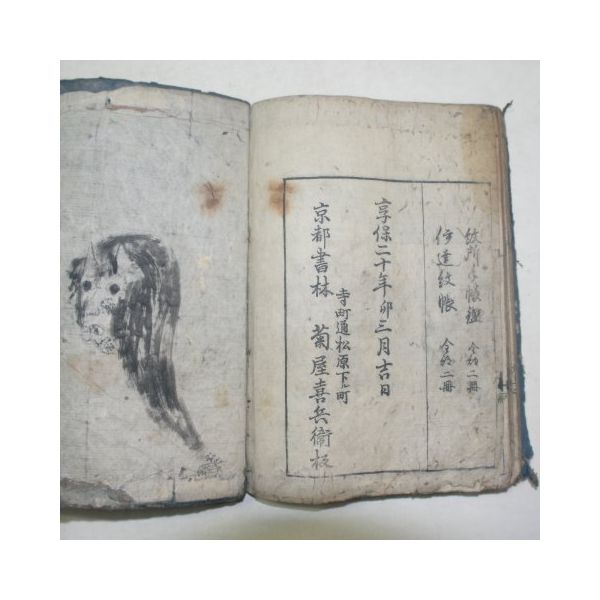 紋所手帳鑑 全部二冊
伊達紋帳 全部二冊
享保二十年卯三月吉日
寺町通松原下ル町
京都書林 菊屋喜兵衛板